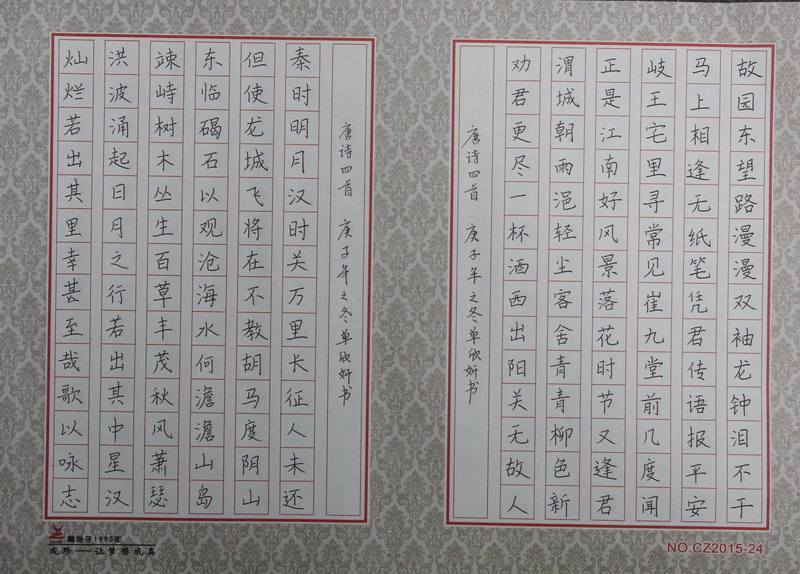 故园东望路漫漫双袖龙钟泪不干
马上相逢无纸笔凭君传语报平安
岐王宅里寻常见崔九堂前几度闻
正是江南好风景落花时节又逢君
渭城朝雨浥轻尘客舍青青柳色新
劝君更尽一杯酒西出阳关无故人
唐诗四首 庚子年之冬单欣妍书
唐诗四首 庚子年之冬单欣妍书
秦时明月汉时关万里长征人未还
但使龙城飞将在不教胡马度阴山
东临碣石以观沧海水何澹澹山岛
竦峙树木丛生百草丰茂秋风萧瑟
洪波涌起日月之行若出其中星汉
灿烂若出其里幸甚至哉歌以咏志
始于1995年
成珍——让梦想成真
NO.CZ2015-24